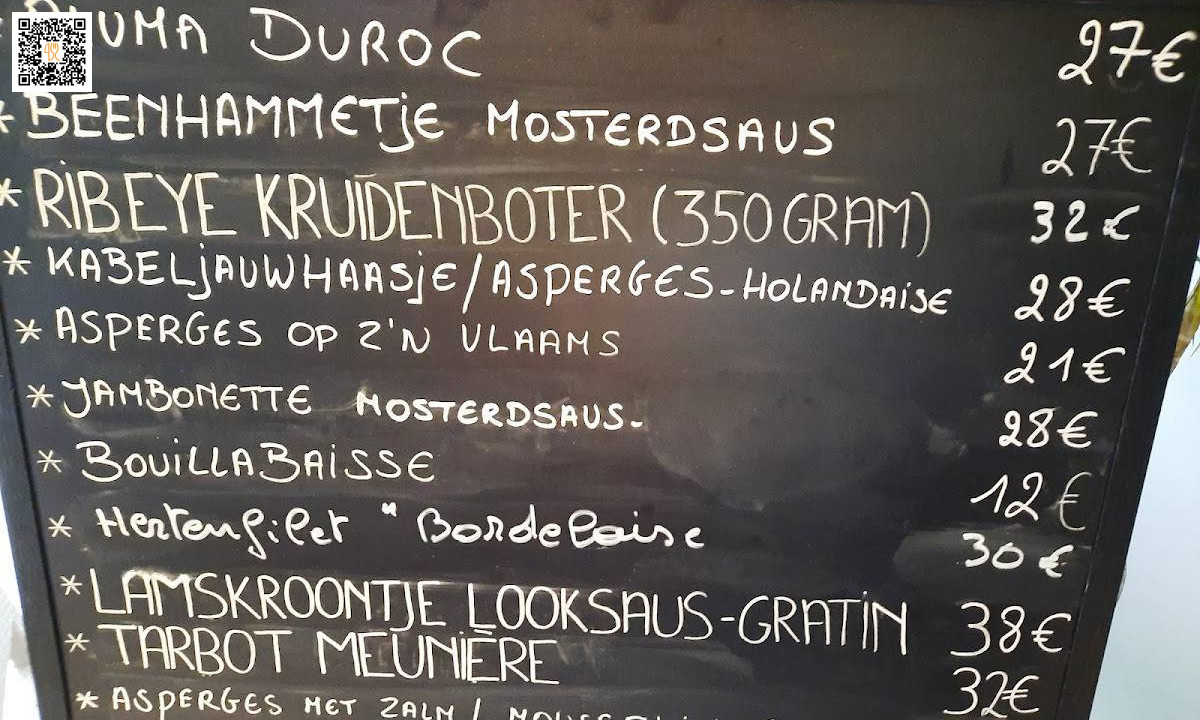 * PLUMA DUROC 27€
* BEENHAMMETJE MOSTERDSAUS 27€
* RIBEYE KRUIDENBOTER (350GRAM) 32€
* KABELJAUWHAASJE/ASPERGES-HOLANDAISE 28€
* ASPERGES OP Z'N VLAAMS 21€
* JAMBONETTE MOSTERDSAUS- 28€
* BOUILLABAISSE 12€
* Hertenfilet "Bordelaise 30€
* LAMSKROONTJE LOOKSAUS-GRATIN 38€
* TARBOT MEUNIÈRE 32€
* ASPERGES MET ZALM/